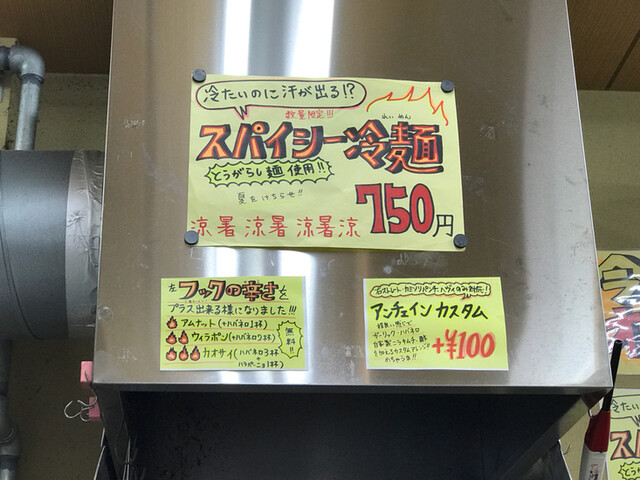 冷たいのに汗が出る!?
数量限定!!!
れいめん
スパイシー冷麺
とうがらし麺 使用!!
夏をけちらせ!!
涼暑涼暑涼暑涼
750円
左フックの辛さを
プラス出来る様になりました!!!
アムナット(+ハバネロ1杯)
ウィラポン(+ハバネロ2杯)
カオサイ(ハバネロ3杯
+
ハラペーニョ1杯)
無料!!
アンチェイン カスタム
ガーリック・ハバネロ
+¥100
スパイシ
とうがらし